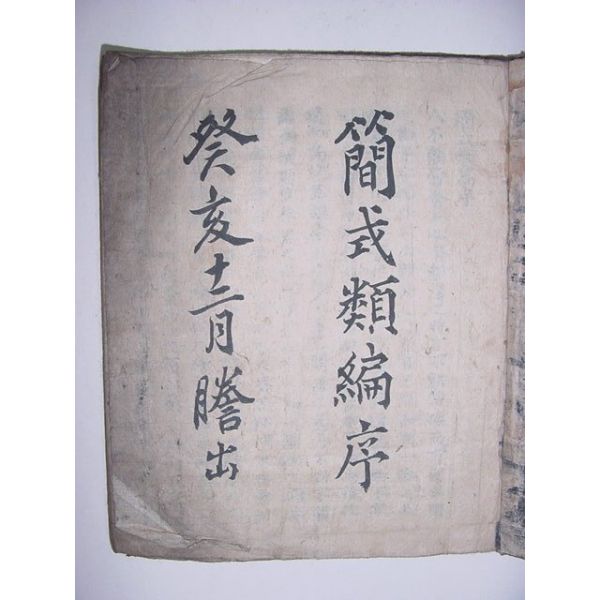 簡式類編序
癸亥十二月謄出